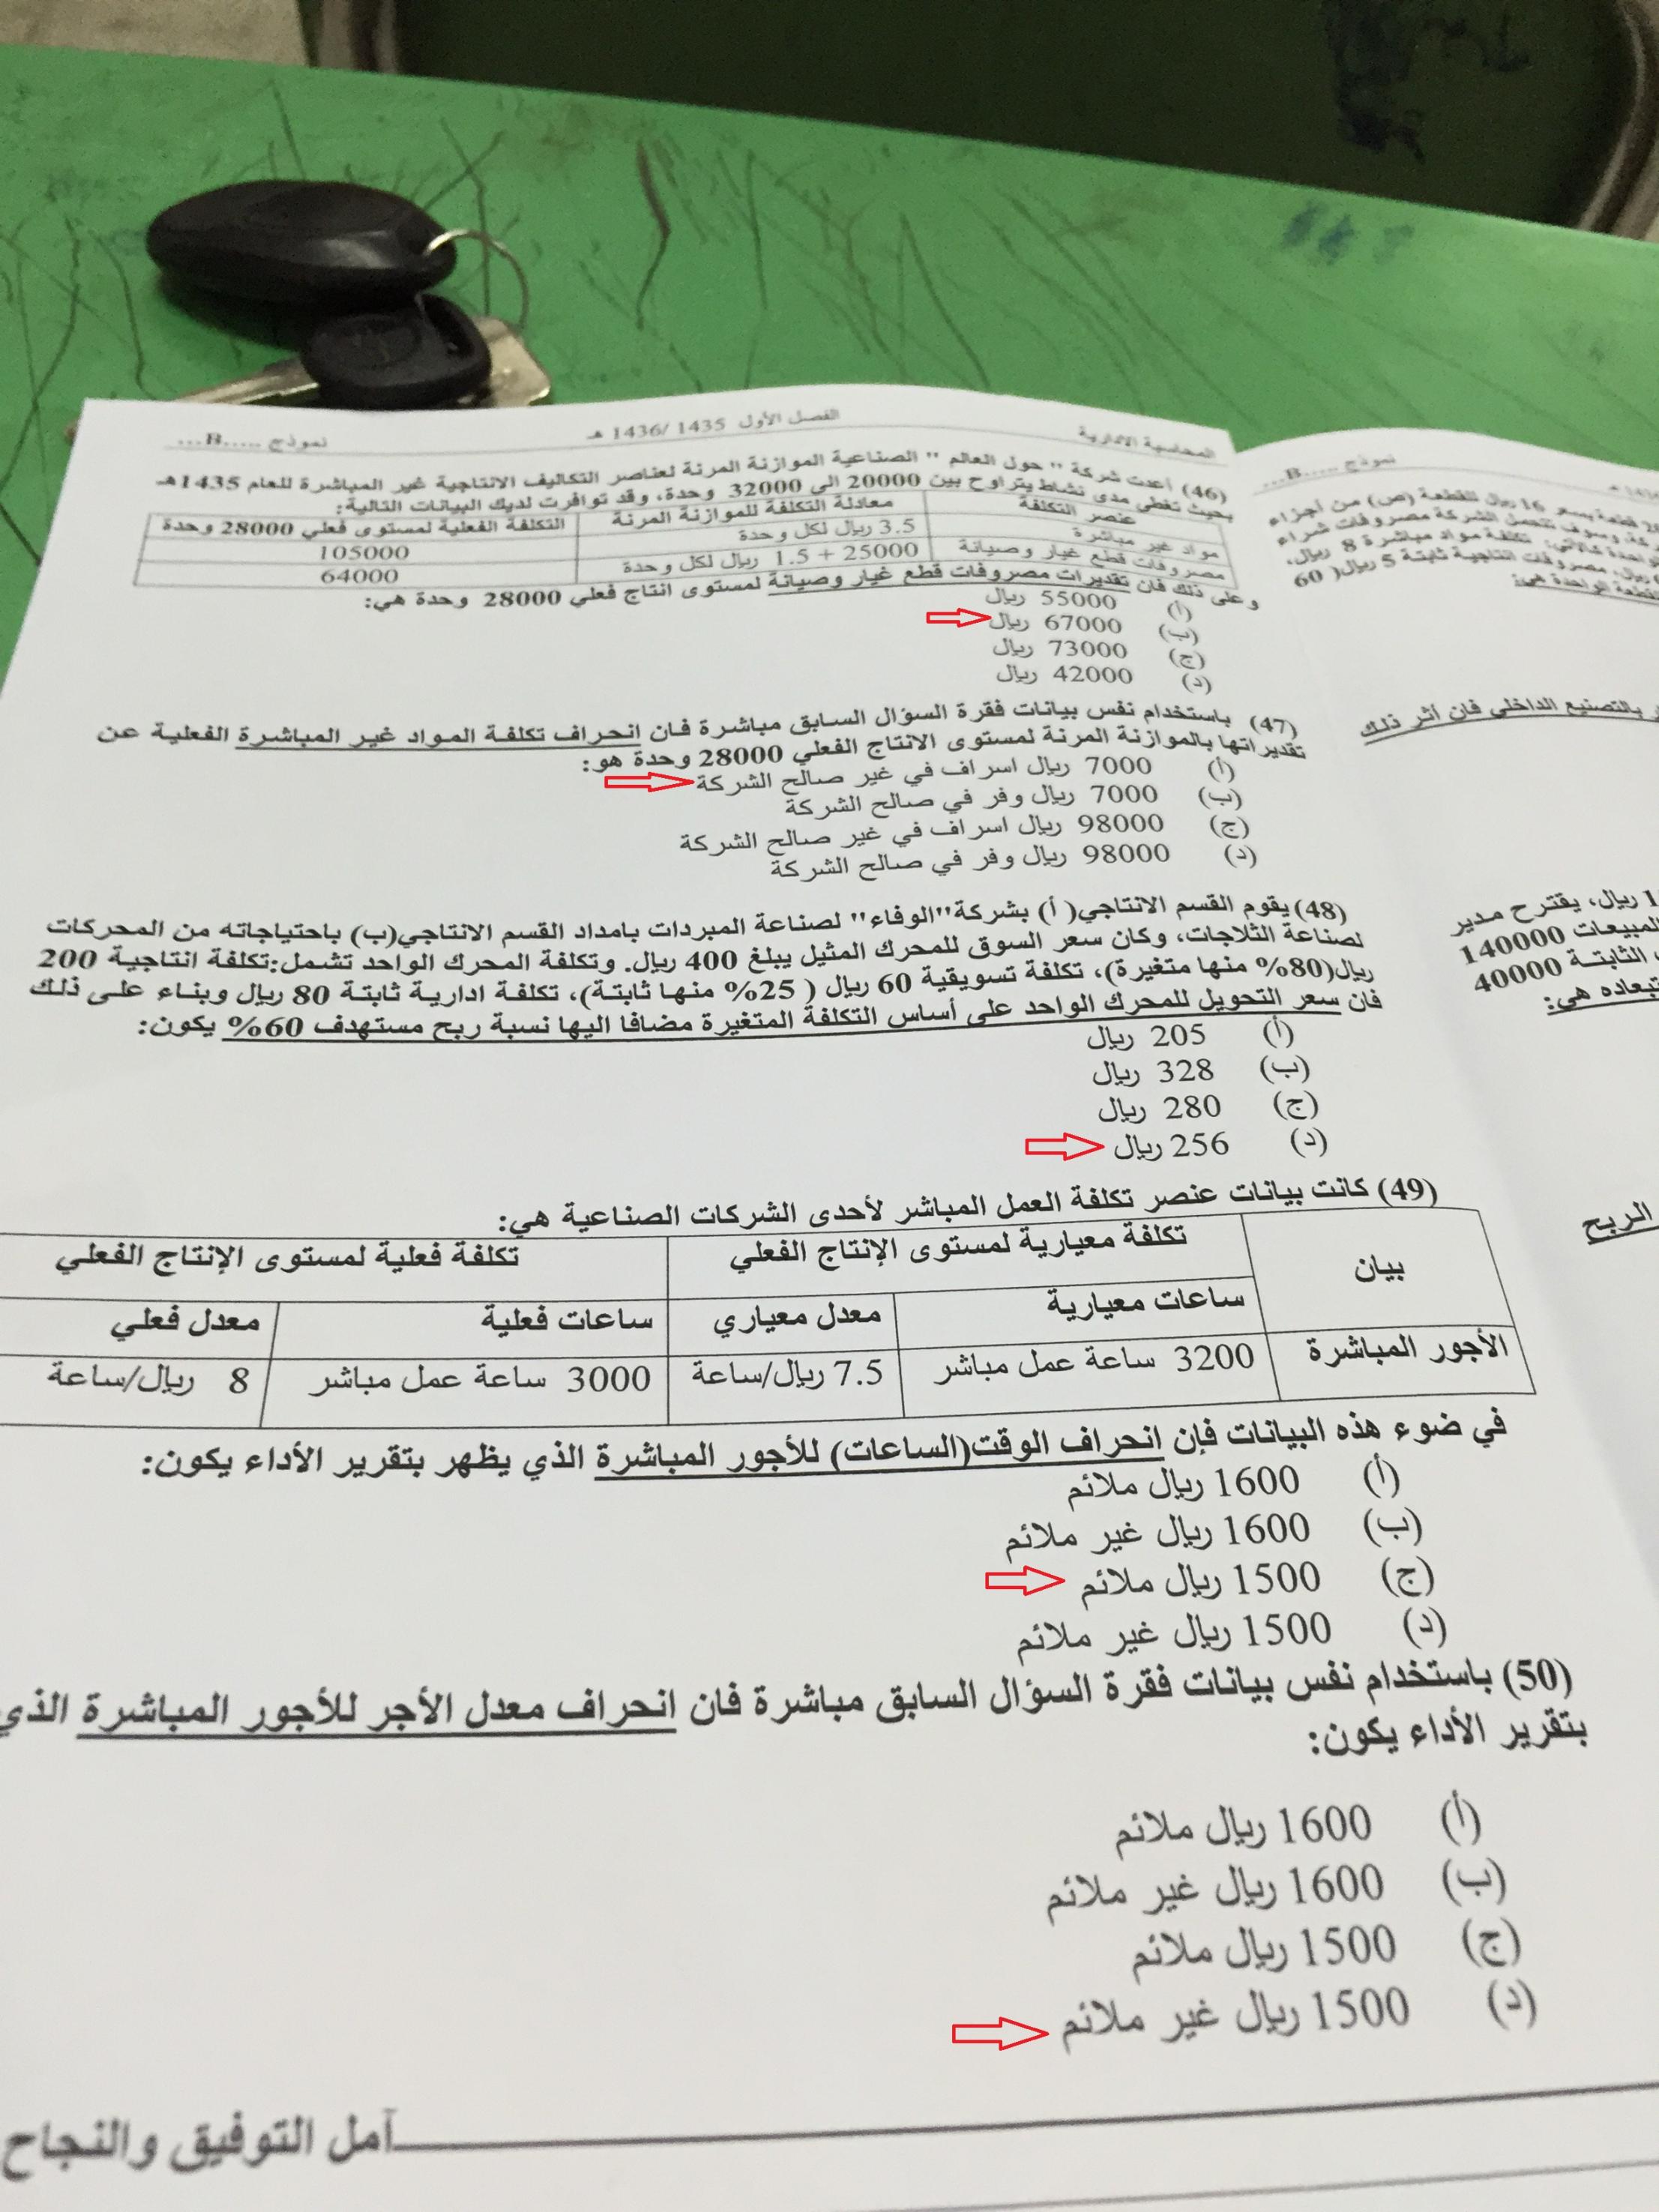 المحاسبة الادارية الفصل الأول 1435 /1436 هـ نموذج .....B...
(46) أعدت شركة " حول العالم " الصناعية الموازنة المرنة لعناصر التكاليف الانتاجية غير المباشرة للعام 1435هـ
بحيث تغطي مدى نشاط يتراوح بين 20000 الى 32000 وحدة، وقد توافرت لديك البيانات التالية:
عنصر التكلفة معادلة التكلفة للموازنة المرنة التكلفة الفعلية لمستوى فعلي 28000 وحدة
مواد غير مباشرة 3.5 ريال لكل وحدة 105000
مصروفات قطع غيار وصيانة 25000 + 1.5 ريال لكل وحدة 64000
وعلى ذلك فان تقديرات مصروفات قطع غيار وصيانة لمستوى انتاج فعلي 28000 وحدة هي:
(أ) 55000 ريال
(ب) 67000 ريال
(ج) 73000 ريال
(د) 42000 ريال
(47) باستخدام نفس بيانات فقرة السؤال السابق مباشرة فان انحراف تكلفة المواد غير المباشرة الفعلية عن
تقديراتها بالموازنة المرنة لمستوى الانتاج الفعلي 28000 وحدة هو:
(أ) 7000 ريال اسراف في غير صالح الشركة
(ب) 7000 ريال وفر في صالح الشركة
(ج) 98000 ريال اسراف في غير صالح الشركة
(د) 98000 ريال وفر في صالح الشركة
(48) يقوم القسم الانتاجي( أ) بشركة"الوفاء" لصناعة المبردات بامداد القسم الانتاجي(ب) باحتياجاته من المحركات
لصناعة الثلاجات، وكان سعر السوق للمحرك المثيل يبلغ 400 ريال. وتكلفة المحرك الواحد تشمل:تكلفة انتاجية 200
ريال(80% منها متغيرة)، تكلفة تسويقية 60 ريال ( 25% منها ثابتة)، تكلفة ادارية ثابتة 80 ريال وبناء على ذلك
فان سعر التحويل للمحرك الواحد على أساس التكلفة المتغيرة مضافا اليها نسبة ربح مستهدف 60% يكون:
(أ) 205 ريال
(ب) 328 ريال
(ج) 280 ريال
(د) 256 ريال
(49) كانت بيانات عنصر تكلفة العمل المباشر لأحدى الشركات الصناعية هي:
بيان تكلفة معيارية لمستوى الإنتاج الفعلي تكلفة فعلية لمستوى الإنتاج الفعلي
ساعات معيارية معدل معياري ساعات فعلية معدل فعلي
الأجور المباشرة 3200 ساعة عمل مباشر 7.5 ريال/ساعة 3000 ساعة عمل مباشر 8 ريال/ساعة
في ضوء هذه البيانات فإن انحراف الوقت(الساعات) للأجور المباشرة الذي يظهر بتقرير الأداء يكون:
(أ) 1600 ريال ملائم
(ب) 1600 ريال غير ملائم
(ج) 1500 ريال ملائم
(د) 1500 ريال غير ملائم
(50) باستخدام نفس بيانات فقرة السؤال السابق مباشرة فان انحراف معدل الأجر للأجور المباشرة الذي
بتقرير الأداء يكون:
(أ) 1600 ريال ملائم
(ب) 1600 ريال غير ملائم
(ج) 1500 ريال ملائم
(د) 1500 ريال غير ملائم
آمل التوفيق والنجاح
نموذج .....B...
قطعة بسعر 16 ريال للقطعة (ص) من أجزاء
وسوف تتحمل الشركة مصروفات شراء
تكلفة مواد مباشرة 8 ريال،
مصروفات انتاجية ثابتة 5 ريال( 60
للقطعة الواحدة هي:
بالتصنيع الداخلي فان أثر ذلك
ريال، يقترح مدير
المبيعات 140000
الثابتة 40000
هي:
الربح